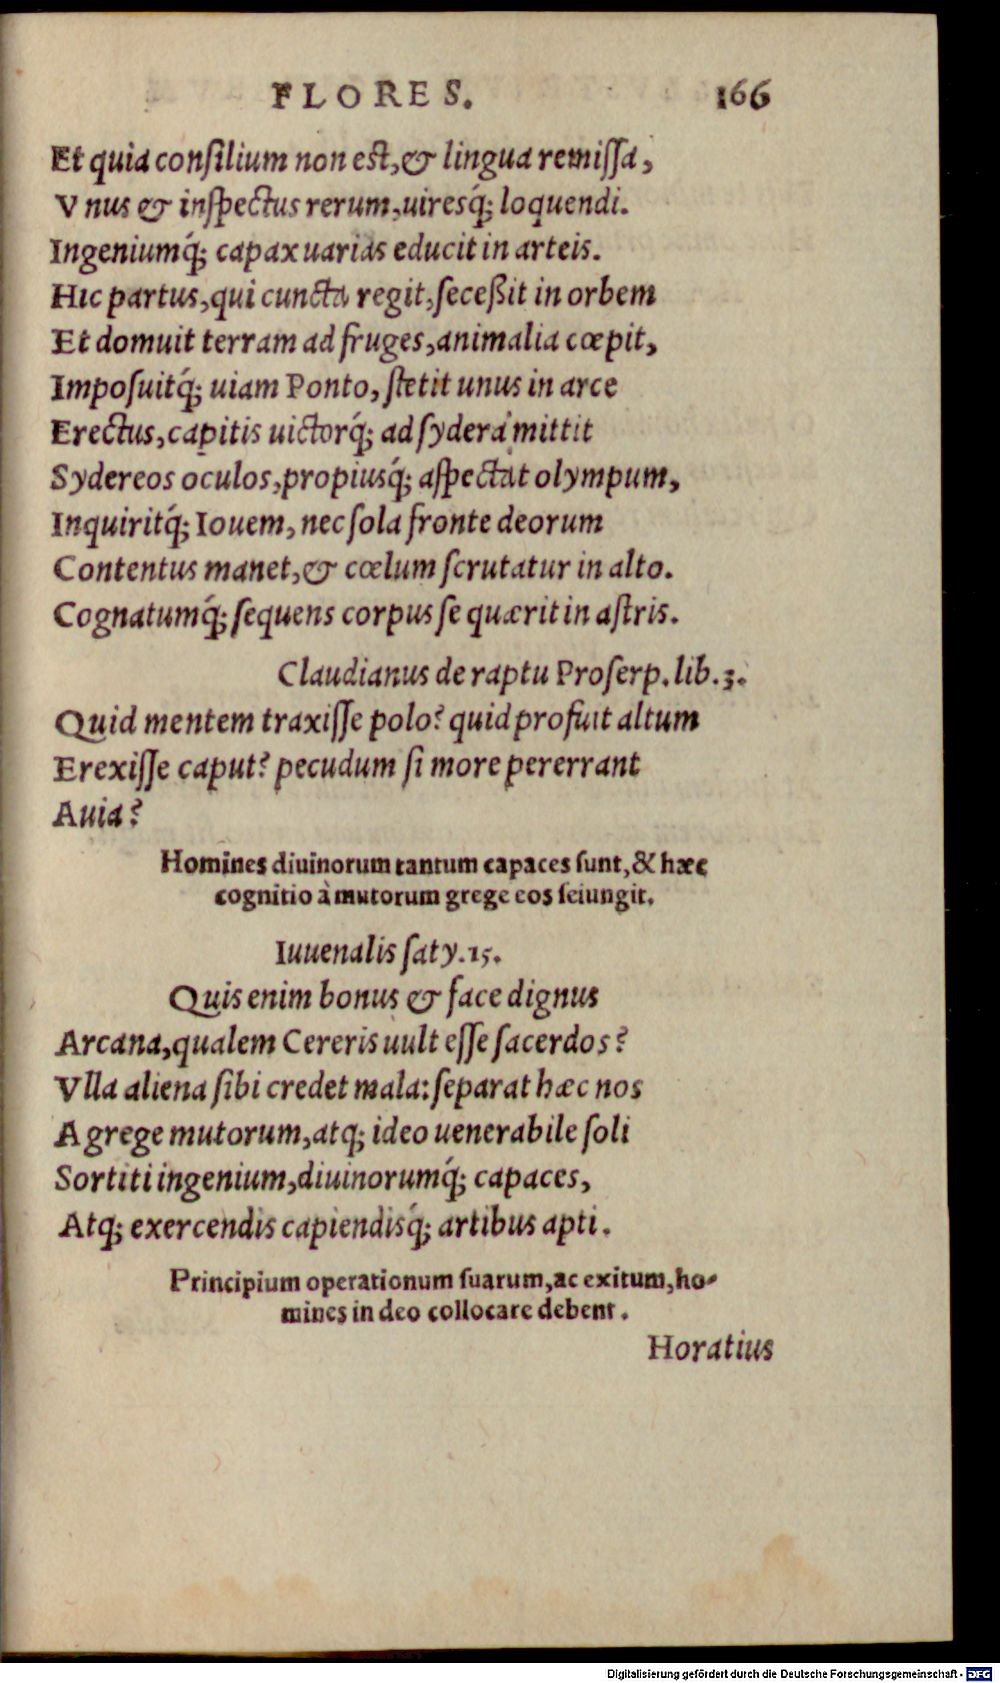 FLORES. 166
Et quia consilium non est, & lingua remissa,
Vnus & inspectus rerum, uiresq́; loquendi.
Ingeniumq́; capax uarias educit in arteis.
Hic partus, qui cuncta regit, seceßit in orbem
Et domuit terram ad fruges, animalia cœpit,
Imposuitq́; uiam Ponto, stetit unus in arce
Erectus, capitis uictorq́; ad sydera mittit
Sydereos oculos, propiusq́; aspectat olympum,
Inquiritq́; Iouem, nec sola fronte deorum
Contentus manet, & cœlum scrutatur in alto.
Cognatumq́; sequens corpus se quærit in astris.
Claudianus de raptu Proserp. lib. 3.
Quid mentem traxisse polo? quid profuit altum
Erexisse caput? pecudum si more pererrant
Auia?
Homines diuinorum tantum capaces sunt, & hæc
cognitio à mutorum grege eos seiungit.
Iuuenalis saty. 15.
Quis enim bonus & face dignus
Arcana, qualem Cereris uult esse sacerdos?
Vlla aliena sibi credet mala: separat hæc nos
A grege mutorum, atq; ideo uenerabile soli
Sortiti ingenium, diuinorumq́; capaces,
Atq; exercendis capiendisq́; artibus apti.
Principium operationum suarum, ac exitum, ho-
mines in deo collocare debent.
Horatius
Digitalisierung gefördert durch die Deutsche Forschungsgemeinschaft - DFG